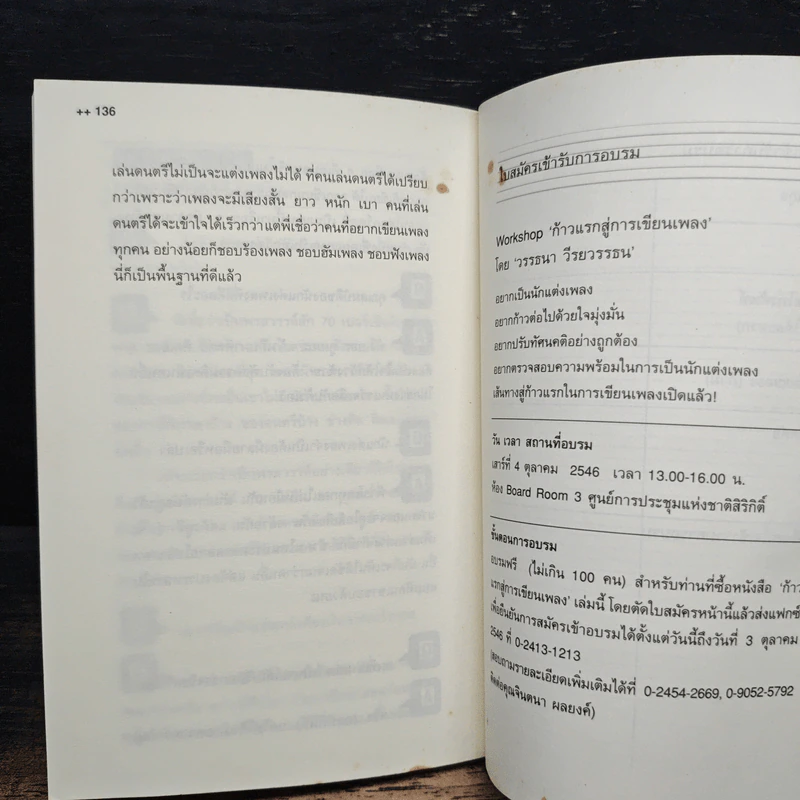 ++ 136
เล่นดนตรีไม่เป็นจะแต่งเพลงไม่ได้ ที่คนเล่นดนตรีได้เปรียบ
กว่าเพราะว่าเพลงจะมีเสียงสั้น ยาว หนัก เบา คนที่เล่น
ดนตรีได้จะเข้าใจได้เร็วกว่า แต่พี่เชื่อว่าคนที่อยากเขียนเพลง
ทุกคน อย่างน้อยก็ชอบร้องเพลง ชอบฮัมเพลง ชอบฟังเพลง
นี่ก็เป็นพื้นฐานที่ดีแล้ว
ใบสมัครเข้ารับการอบรม
Workshop 'ก้าวแรกสู่การเขียนเพลง'
โดย 'วรรธนา วีรยวรรธน'
อยากเป็นนักแต่งเพลง
อยากก้าวต่อไปด้วยใจมุ่งมั่น
อยากปรับทัศนคติอย่างถูกต้อง
อยากตรวจสอบความพร้อมในการเป็นนักแต่งเพลง
เส้นทางสู่ก้าวแรกในการเขียนเพลงเปิดแล้ว!
วัน เวลา สถานที่อบรม
เสาร์ที่ 4 ตุลาคม 2546 เวลา 13.00-16.00 น.
ห้อง Board Room 3 ศูนย์การประชุมแห่งชาติสิริกิติ์
ขั้นตอนการอบรม
อบรมฟรี (ไม่เกิน 100 คน) สำหรับท่านที่ซื้อหนังสือ 'ก้าว
แรกสู่การเขียนเพลง' เล่มนี้ โดยตัดใบสมัครหน้านี้แล้วส่งแฟกซ์
เพื่อยืนยันการสมัครเข้าอบรมได้ตั้งแต่วันนี้ถึงวันที่ 3 ตุลาคม
2546 ที่ 0-2413-1213
(สอบถามรายละเอียดเพิ่มเติมได้ที่ 0-2454-2669, 0-9052-5792
ติดต่อคุณจินตนา ผลยงค์)